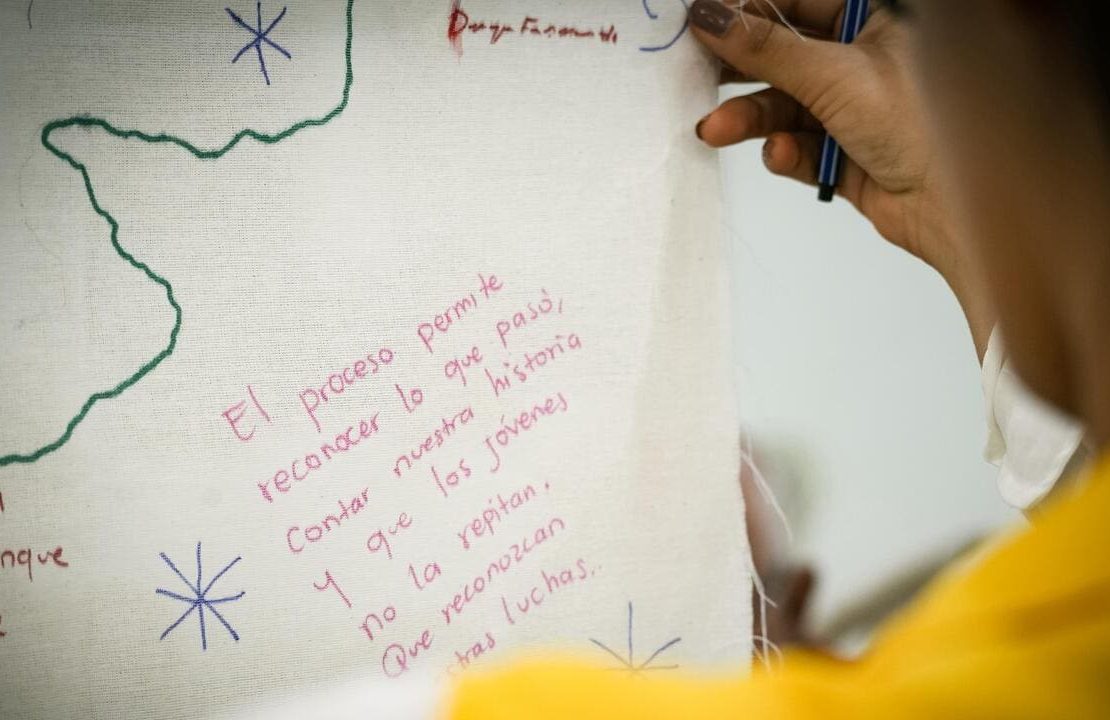 El proceso permite
reconocer lo que pasó,
contar nuestra historia
y que los jóvenes
no la repitan.
Que reconozcan
luchas..